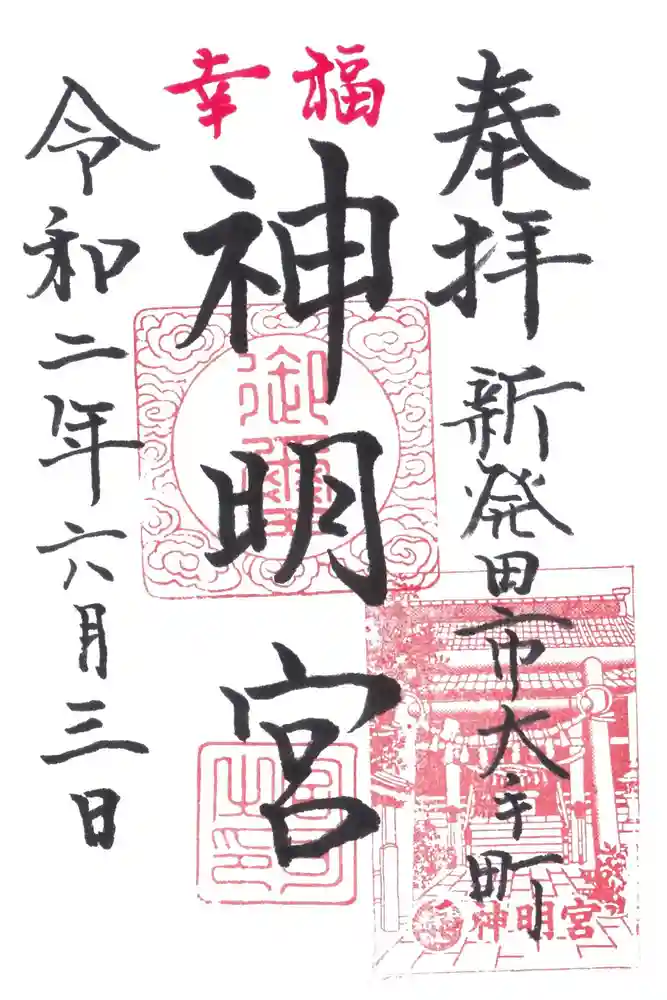 奉拝
新発田市大手町
福
幸
神明宮
御璽
神明宮
令和二年六月三日